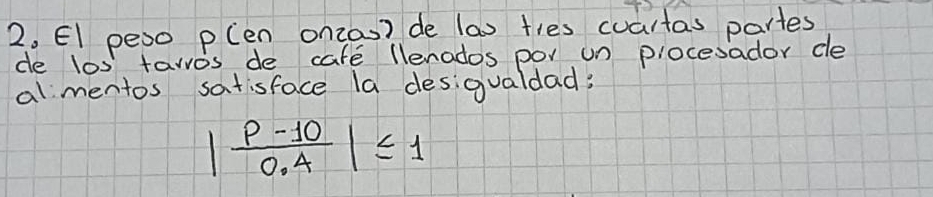 2. El peso p (en onzas) de las tres cuartas partes
de los tarros de café llenados por un procesador de
alimentos satisface la desigualdad:
| P - 10 / 0.4 | ≤ 1